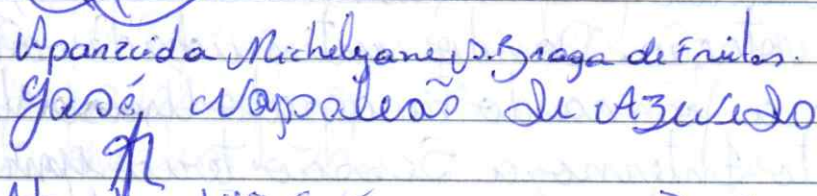 Aparecida Michelyane S. Braga de Freitas.
José Napoleão de Azevedo